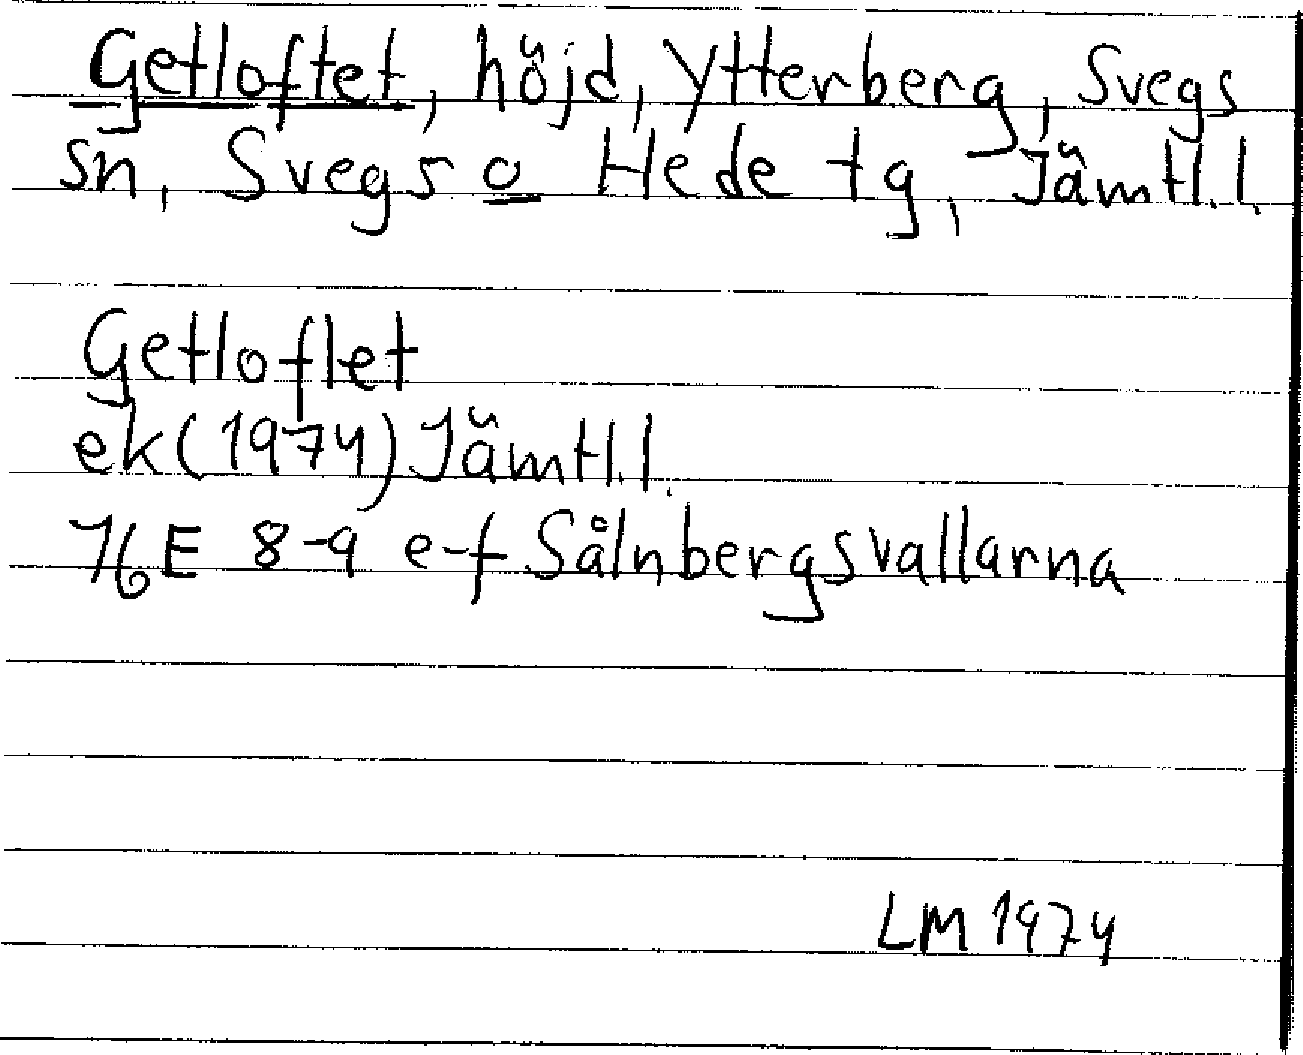 Getloftet, höjd, Ytterberg, Svegs
sn, Svegs o Hede tg, Jämtl.l.
Getloftet
ek (1974) Jämtl.l.
16E 8-9 e-f Sålnbergsvallarna
LM 1974